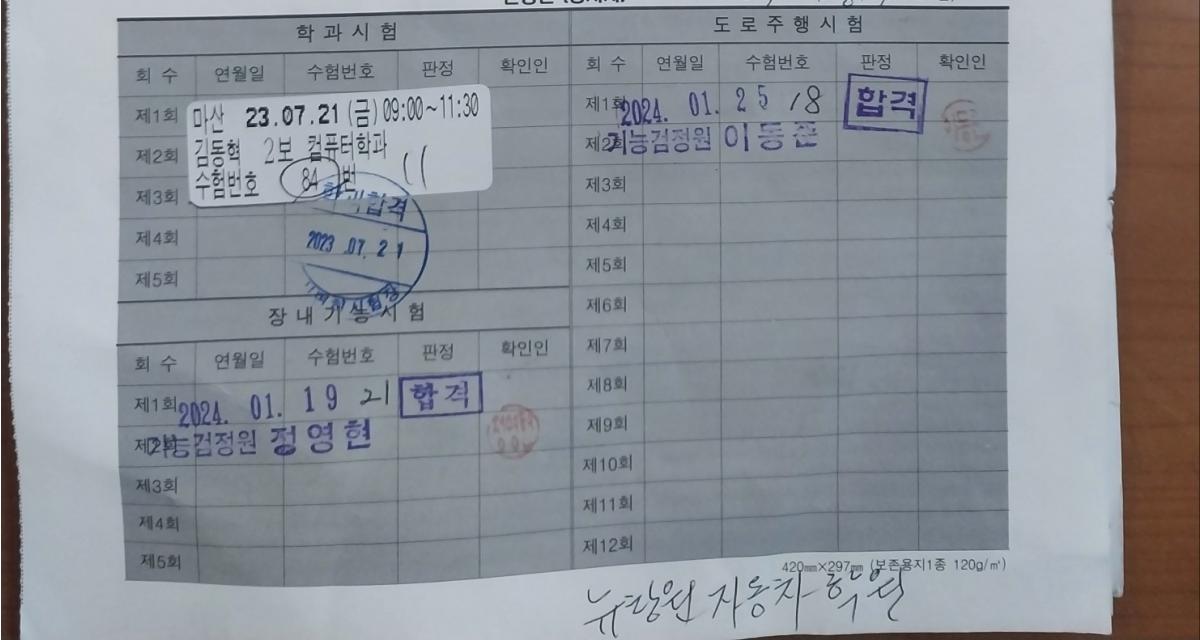 학과시험
회 수 연월일 수험번호 판정 확인인
제1회
제2회
제3회
제4회
제5회
마산 23.07.21 (금) 09:00~11:30
김동혁 2보 컴퓨터학과
수험번호 84 번 11
학과합격
2023. 07. 21
장내기능시험
회 수 연월일 수험번호 판정 확인인
제1회 2024. 01. 19 21 합격
제2회 기능검정원 정영현
제3회
제4회
제5회
도로주행시험
회 수 연월일 수험번호 판정 확인인
제1회 2024. 01. 25 18 합격
제2회 기능검정원 이동준
제3회
제4회
제5회
제6회
제7회
제8회
제9회
제10회
제11회
제12회
420㎜×297㎜ (보존용지1종 120g/㎡)
뉴창원 자동차 학원